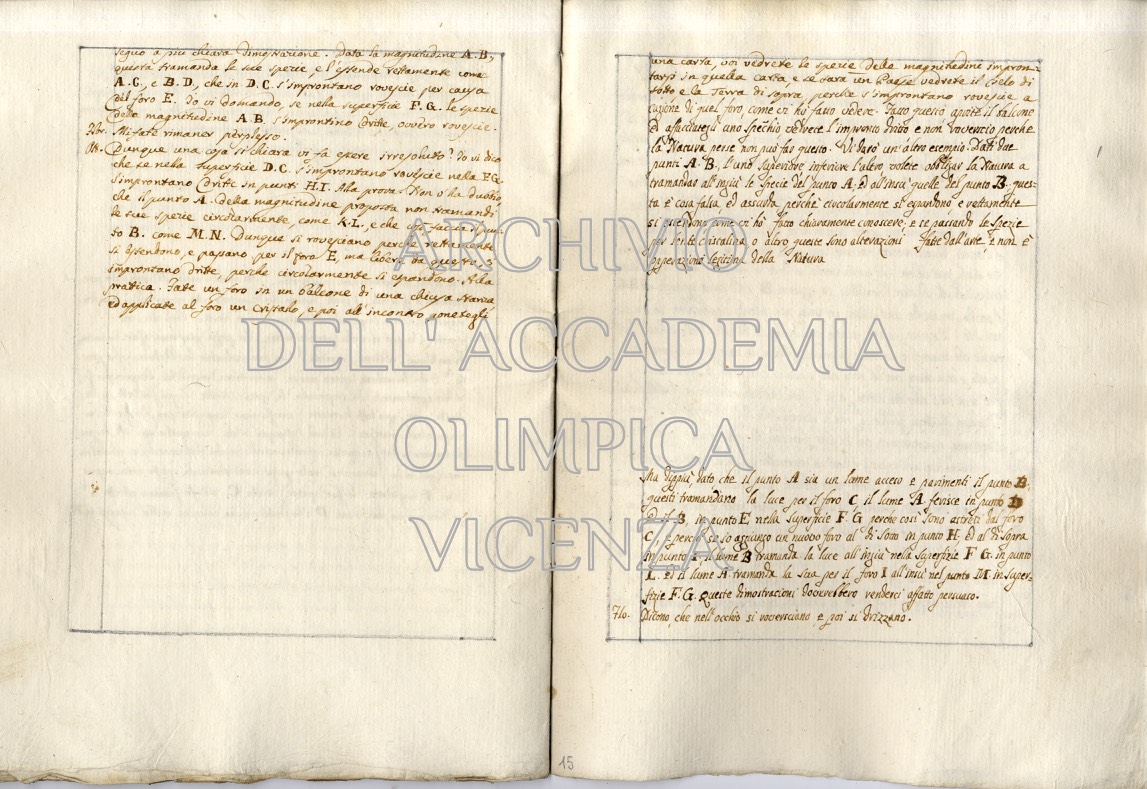 seguo a più chiara dimostrazione. Data la magnitudine A. B,
questa tramanda le sue spezie, e l'estende rettamente come
A. C, e B. D, che in D. C s'improntano rovescie per causa
del foro E. Io vi domando, se nella superficie F. G. le spezie
della magnitudine A. B s'improntino dritte, ovvero rovescie.
Flo. Mi fate rimaner perplesso.
Dunque una cosa si chiara vi fa essere irresoluto? Io vi dico
che se nella superficie D. C. s'improntano rovescie nella F.G
s'improntano dritte in punti H. I. Alla prova. Non v'ha dubbio
che il punto A. della magnitudine proposta non tramandi
le sue spezie circolarmente, come K. L, e che
to B. come M. N. Dunque si rovesciano perche rettamente
si estendono, e passano per il foro E, ma libere da questo, s'
improntano dritte, perche circolarmente si espandono. Alla
pratica. Fate un foro in un balcone di una chiusa stanza
ed applicate al foro un cristallo, e poi all'incontro ponetegli
una carta, voi vedrete le spezie delle magnitudini impron-
tarsi in quella carta e se sarà un Paese vedrete il Cielo di
sotto e la Terra di sopra perche s'improntano rovescie a
cagione di quel foro, come vi hò fatto vedere. Fatto questo aprite il balcone
ed affacciategli uno specchio, vedrete l'impronto dritto e non rovescio perche
la Natura per se non può far questo. Vi darò un'altro esempio. Dati due
punti A. B. l'uno superiore inferiore l'altro volete obbligar la Natura a
tramandar all'ingiù le specie del punto A. ed all'insù quelle del punto B. ques-
ta è cosa falsa ed assurda, perche circolarmente si espandono e rettamente
si estendono come vi hò fatto chiaramente conoscere; e se passando le spezie
per lente cristalina o altro queste sono alterazioni fatte dall'arte, e non è
operazione legitima della Natura
Ma dippiù, dato che il punto A sia un lume acceso e parimenti il punto B.
questi tramandano la luce per il foro C, il lume A. ferisce in punto D
ed il B, in punto E nella superficie F. G perche così sono astretti dal foro
C, e perche se io aggiungo un nuovo foro al di sotto in punto H. ed al di sopra
in punto I. il lume B tramanda la luce all'ingiù nella superfizie F G. in punto
L. ed il lume A. tramanda la sua per il foro I all'insù nel punto M. in super-
fizie F. G. queste dimostrazioni dovrebbero renderci affatto persuaso.
Flo. Dicono, che nell'occhio si rovesciano e poi si drizzano.
15
ARCHIVIO
DELL' ACCADEMIA
OLIMPICA
VICENZA